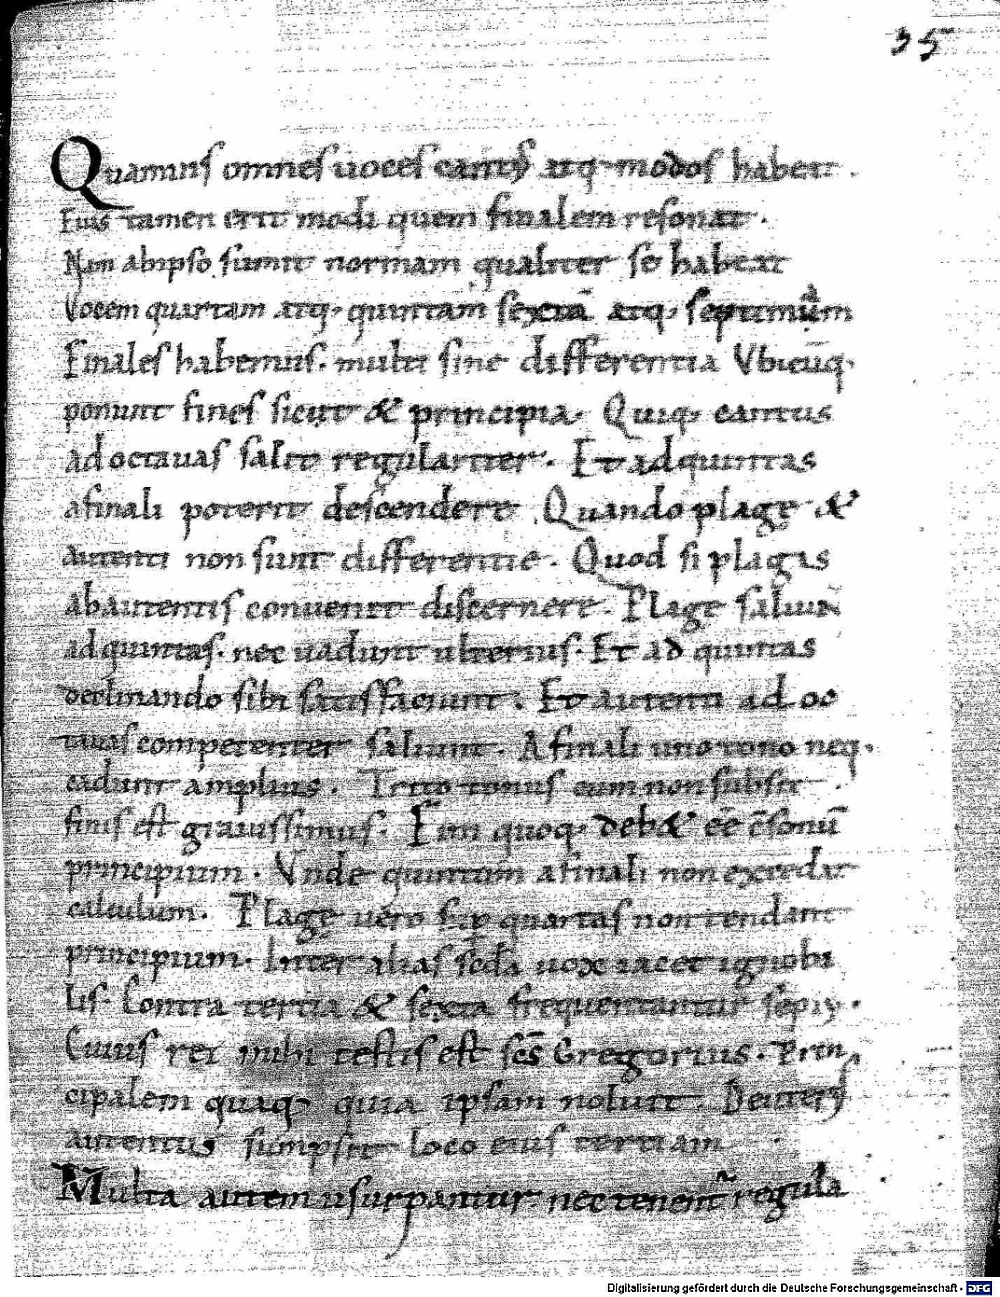 35
Quamuis omnes uoces cantꝰ atq· modos habeat ·
Eius tamen erit modi quem finalem resonat ·
Nam abipso sumit normam qualiter se habeat
Vocem quartam atq· quintam sextā atq· septimam
Finales habemus · multi sine differentia Vbicūq·
ponunt fines sicut & principia · Quiq· cantus
ad octauas salit regulariter · Et ad quintas
afinali poterit descendere Quando plagę &
autenti non sunt differentie · Quod si plagas
abautentis conuenit discernere · Plagę saliun̄
ad quintas · nec uadunt ulterius · Et ad quintas
declinando sibi satisfaciunt · Et autenti ad oc
tauas competenter saliunt · A finali uno tono neq·
cadunt amplius · Trito tonus cum non subsit
finis est grauissimus · Eim quoq· deb& eē c̄sonū
principium · Vnde quintam afinali non excedat
calculum · Plagę uero sup quartas non tendant
principium · Inter alias scd̄a uox iacet ignobi
lis · Contra tertia & sexta frequentantur sepiꝰ ·
Cuius rei mihi testis est scs̄ Gregorius · Prin
cipalem quaq· quia ipsam noluit · Deuterꝰ
autentus sumpsit loco eius tertiam ·
Multa autem usurpantur nec tenent̄ regula
Digitalisierung gefördert durch die Deutsche Forschungsgemeinschaft - DFG